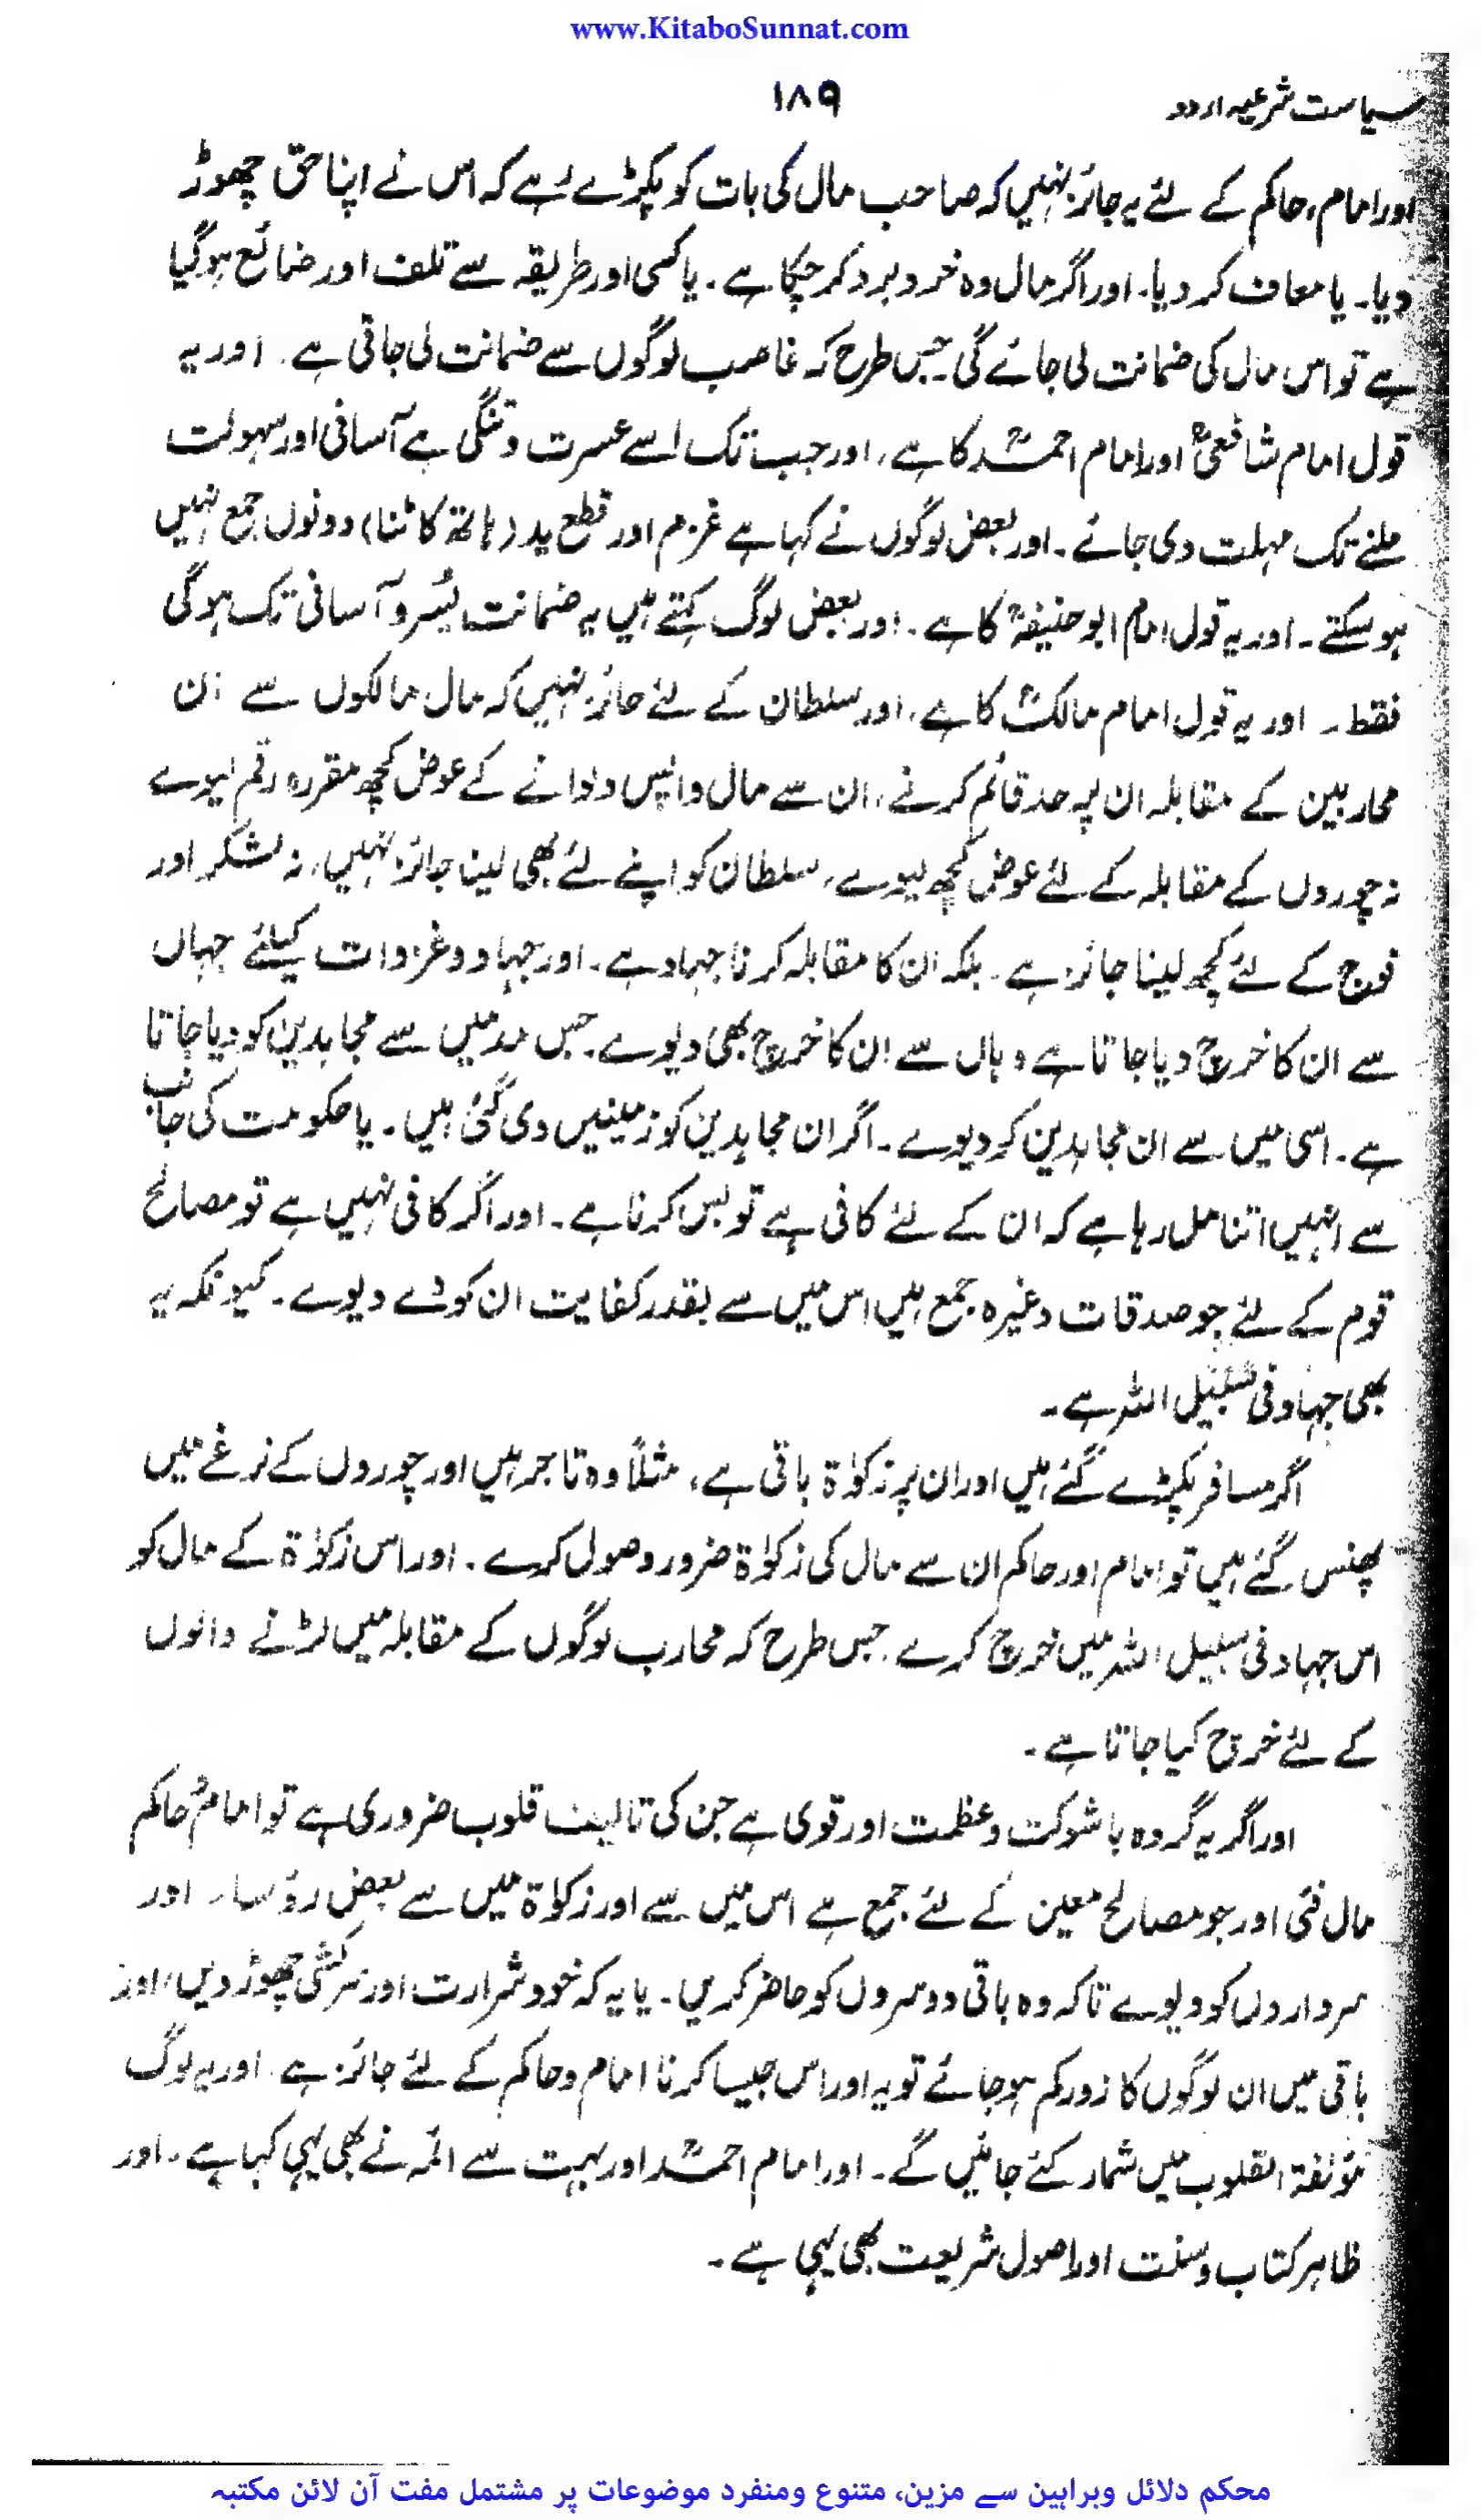 www.KitaboSunnat.com
سیاست شرعیہ اردو
۱۸۹
اور امام، حاکم کے لئے یہ جائز نہیں کہ صاحب مال کی بات کو پکڑے رہے کہ اس نے اپنا حق چھوڑ
دیا۔ یا معاف کر دیا۔ اور اگر مال وہ خرد برد کر چکا ہے۔ یا کسی اور طریقہ سے تلف اور ضائع ہو گیا
ہے تو اس مال کی ضمانت لی جائے گی جس طرح کہ غاصب لوگوں سے ضمانت لی جاتی ہے۔ اور یہ
قول امام شافعیؒ اور امام احمدؒ کا ہے، اور جب تک اسے عسرت و تنگی ہے آسانی اور سہولت
ملنے تک مہلت دی جائے۔ اور بعض لوگوں نے کہا ہے غرم اور قطع ید (ہاتھ کاٹنا) دونوں جمع نہیں
ہو سکتے۔ اور یہ قول امام ابو حنیفہؒ کا ہے۔ اور بعض لوگ کہتے ہیں یہ ضمانت یُسر و آسانی تک ہو گی
فقط۔ اور یہ قول امام مالکؒ کا ہے، اور سلطان کے لئے جائز نہیں کہ مال مالکوں سے ان
محاربین کے مقابلہ ان پہ حد قائم کرنے، ان سے مال واپس دلوانے کے عوض کچھ مقررہ رقم لیوے
نہ چوروں کے مقابلہ کے لئے عوض کچھ لیوے، سلطان کو اپنے لئے بھی لینا جائز نہیں، نہ لشکر اور
فوج کے لئے کچھ لینا جائز ہے۔ بلکہ ان کا مقابلہ کرنا جہاد ہے۔ اور جہاد و غزوات کیلئے جہاں
سے ان کا خرچ دیا جاتا ہے وہاں سے ان کا خرچ بھی دیوے۔ جس مد میں سے مجاہدین کو دیا جاتا
ہے۔ اسی میں سے ان مجاہدین کو دیوے۔ اگر ان مجاہدین کو زمینیں دی گئی ہیں۔ یا حکومت کی جانب
سے انہیں اتنا مل رہا ہے کہ ان کے لئے کافی ہے تو بس کرنا ہے۔ اور اگر کافی نہیں ہے تو مصالح
قوم کے لئے جو صدقات وغیرہ جمع ہیں اس میں سے بقدر کفایت ان کو دے دیوے۔ کیونکہ یہ
بھی جہاد فی سبیل اللہ ہے۔
اگر مسافر پکڑے گئے ہیں اور ان پر زکوٰۃ باقی ہے، مثلاً وہ تاجر ہیں اور چوروں کے نرغے میں
پھنس گئے ہیں تو امام اور حاکم ان سے مال کی زکوٰۃ ضرور وصول کرے۔ اور اس زکوٰۃ کے مال کو
اس جہاد فی سبیل اللہ میں خرچ کرے جس طرح کہ محارب لوگوں کے مقابلہ میں لڑنے والوں
کے لئے خرچ کیا جاتا ہے۔
اور اگر یہ گروہ باشوکت و عظمت اور قوی ہے جن کی تالیف قلوب ضروری ہے تو امام و حاکم
مال فئی اور جو مصالح معین کے لئے جمع ہے اس میں سے اور زکوٰۃ میں سے بعض رؤسا۔ اور
سرداروں کو دیوے تاکہ وہ باقی دوسروں کو حاضر کریں۔ یا یہ کہ خود شرارت اور سرکشی چھوڑ دیں، اور
باقی میں ان لوگوں کا زور کم ہو جائے تو یہ اور اس جیسا کرنا امام و حاکم کے لئے جائز ہے۔ اور یہ لوگ
مؤلفۃ القلوب میں شمار کئے جائیں گے۔ اور امام احمدؒ اور بہت سے ائمہ نے بھی یہی کہا ہے۔ اور
ظاہر کتاب و سنت اور اصول شریعت بھی یہی ہے۔
محکم دلائل وبراہین سے مزین، متنوع ومنفرد موضوعات پر مشتمل مفت آن لائن مکتبہ